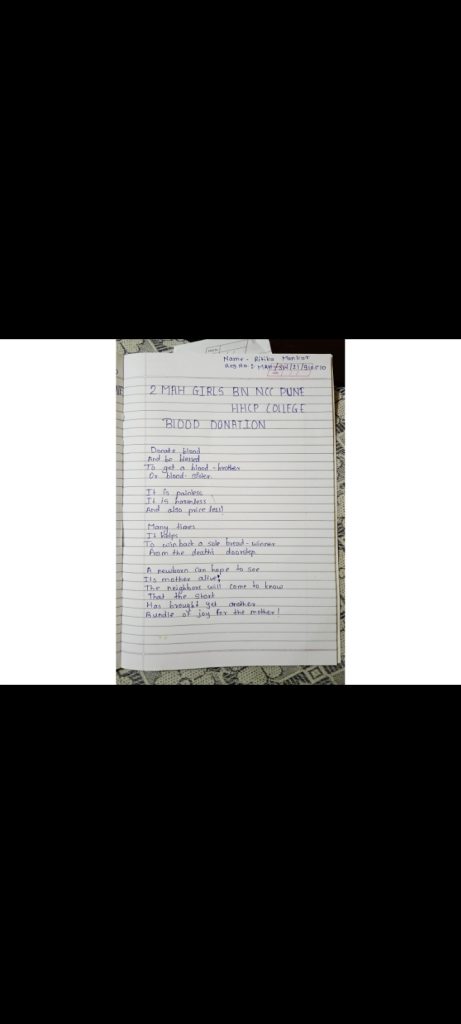 Name - Ritika Mankar
Reg no :
2 MAH GIRLS BN NCC PUNE
HHCP COLLEGE
BLOOD DONATION
Donate blood
And be blessed
To get a blood - brother
Or blood - sister.
It is painless
It is harmless
And also price less!
Many times
It helps
To win back a sole bread - winner
From the death's doorstep.
A newborn can hope to see
Its mother alive!
The neighbors will come to know
That the stork
Has brought yet another
Bundle of joy for the mother!